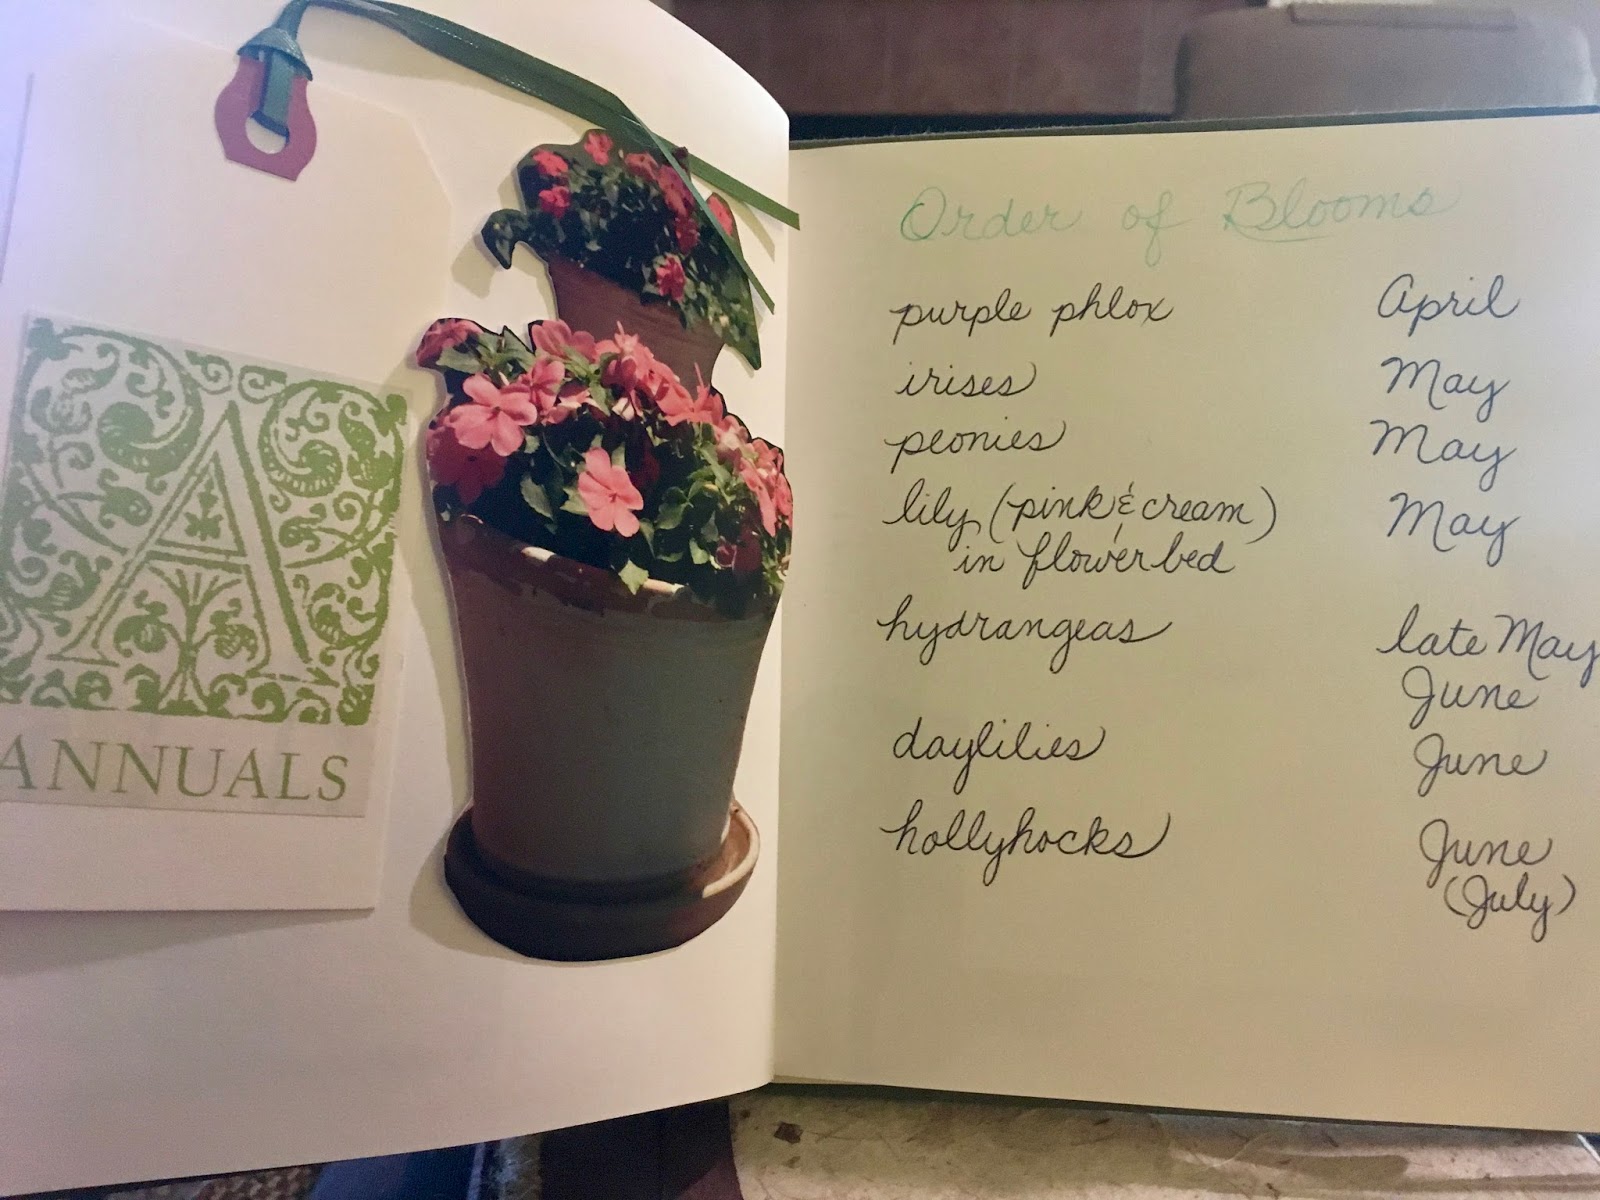 A
ANNUALS
Order of Blooms
purple phlox April
irises May
peonies May
lily (pink & cream) May
in flower bed
hydrangeas late May
June
daylilies June
hollyhocks June
(July)